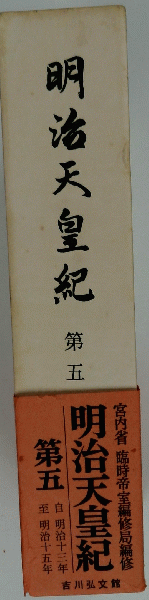 明治天皇紀
第五
宮内省 臨時帝室編修局編修
明治天皇紀
第五
自 明治十三年
至 明治十五年
吉川弘文館